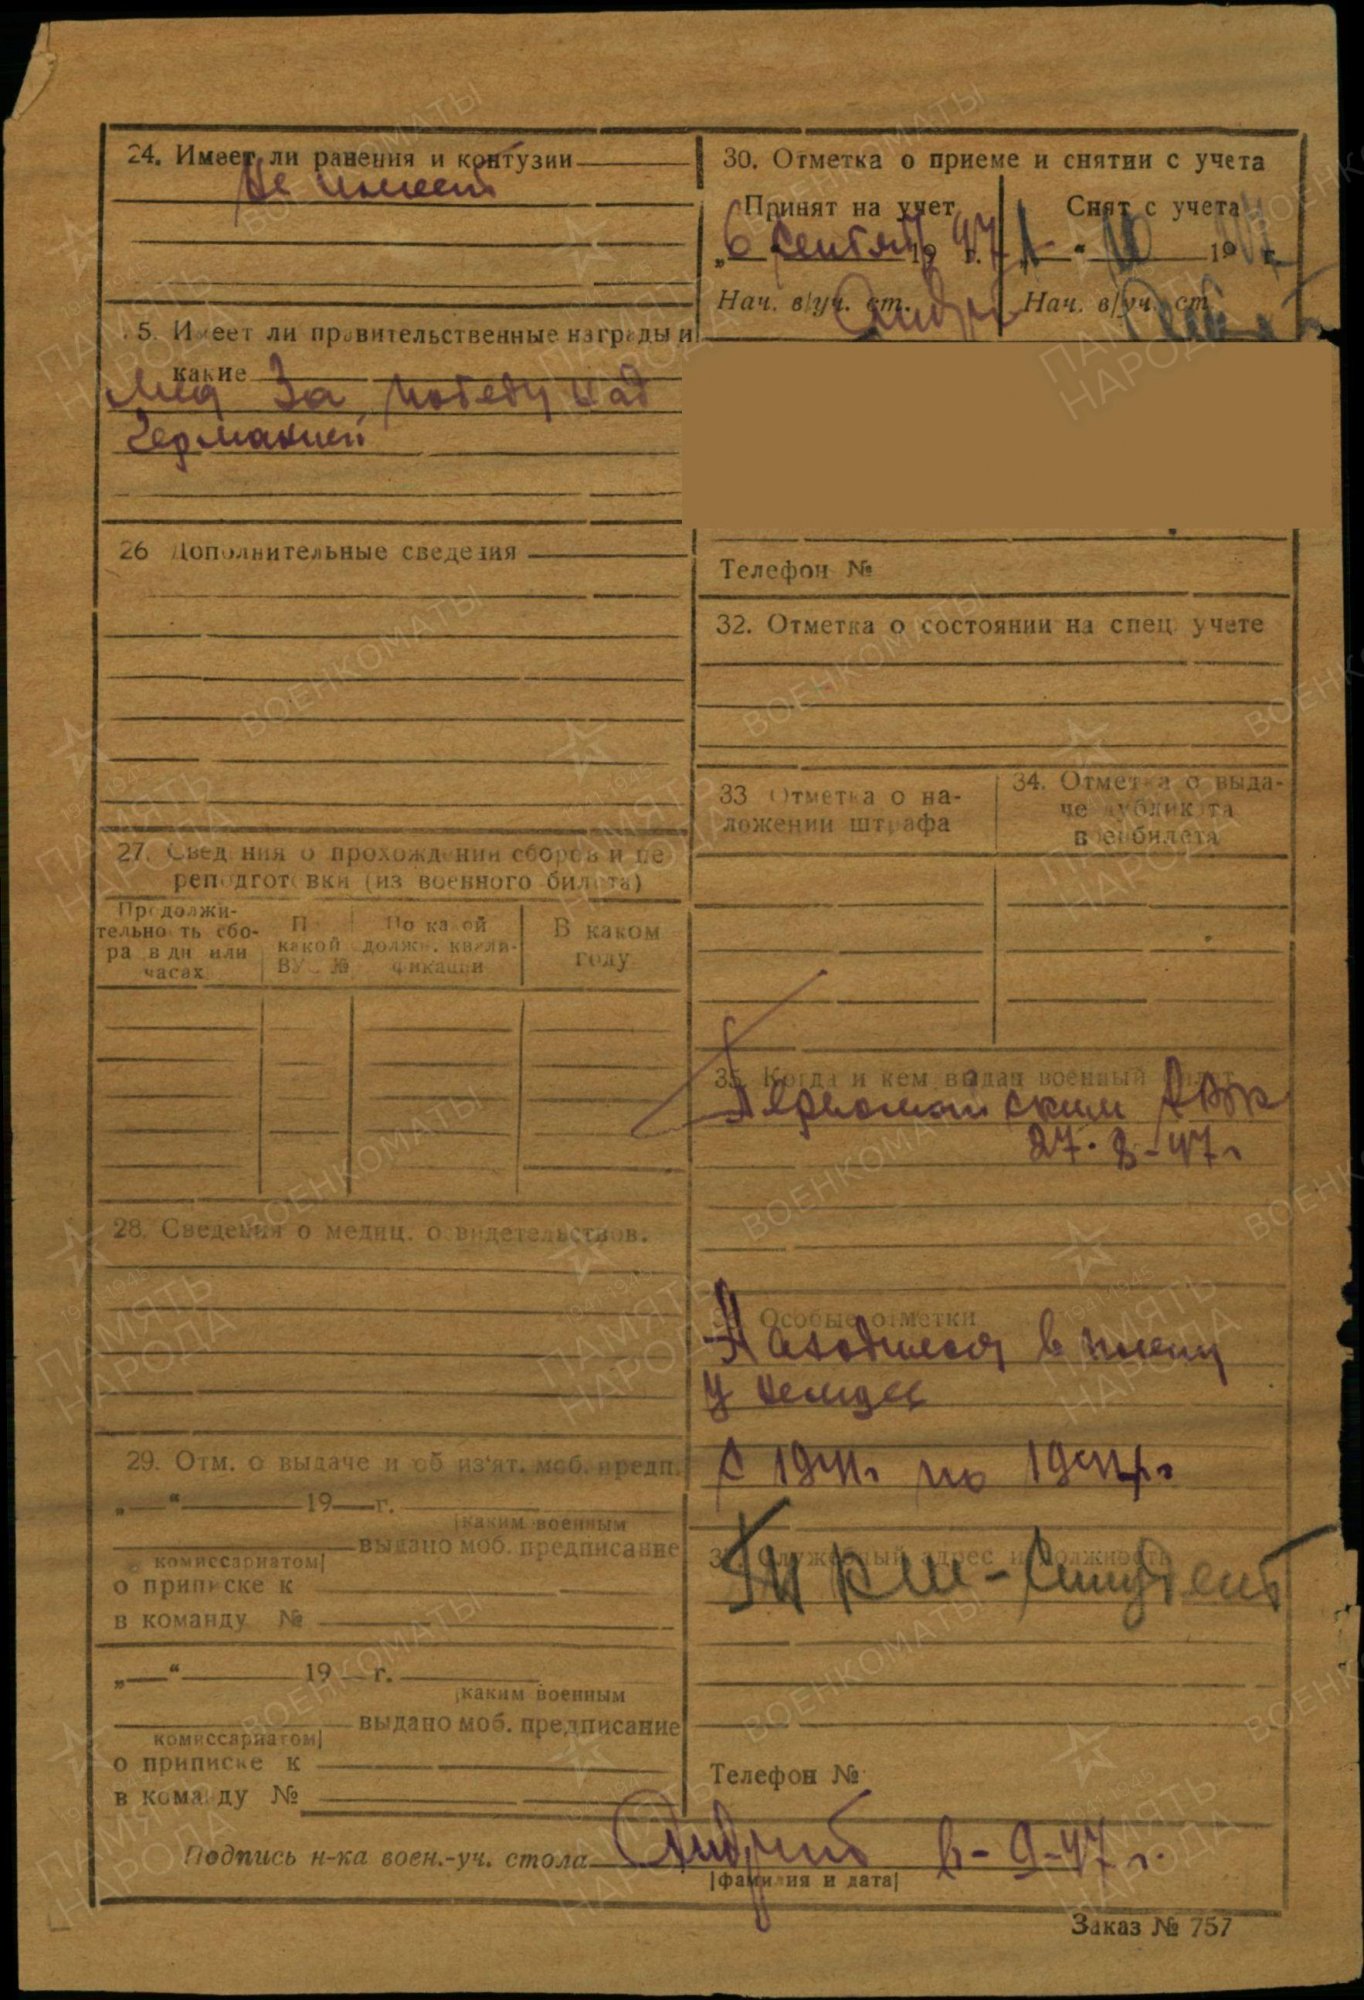 24. Имеет ли ранения и контузии
Не имеет
5. Имеет ли правительственные награды и
какие
Мед За победу над
Германией
26 Дополнительные сведения
27. Сведения о прохождении сборов и пе
реподготовки (из военного билета)
Продолжи-
тельность сбо-
ра в дн или
часах
По
какой
ВУС №
По какой
должн. квали-
фикации
В каком
году
28. Сведения о медиц. освидетельствов.
29. Отм. о выдаче и об из'ят. моб. предп.
„ “ 19 г.
|каким военным
выдано моб. предписание
комиссариатом|
о приписке к
в команду №
„ “ 19 г.
|каким военным
выдано моб. предписание
комиссариатом|
о приписке к
в команду №
30. Отметка о приеме и снятии с учета
Принят на учет
„6 “ сентяб 1947 г.
Нач. в/уч. ст.
Снят с учета
„1 “ 10 1947 г.
Нач. в/уч. ст
Телефон №
32. Отметка о состоянии на спец. учете
33 Отметка о на-
ложении штрафа
34. Отметка о выда-
че дубликата
военбилета
35 Когда и кем выдан военный билет
Первомайским РВК
27-8-47г.
36 Особые отметки
Находился в плену
у немцев
с 1941г. по 194 г.
37 Служебный адрес и должность
Студент
Телефон №
Подпись н-ка воен.-уч. стола 6-9-47 г.
|фамилия и дата|
Заказ № 757
ПАМЯТЬ НАРОДА
1941-1945
ВОЕНКОМАТЫ